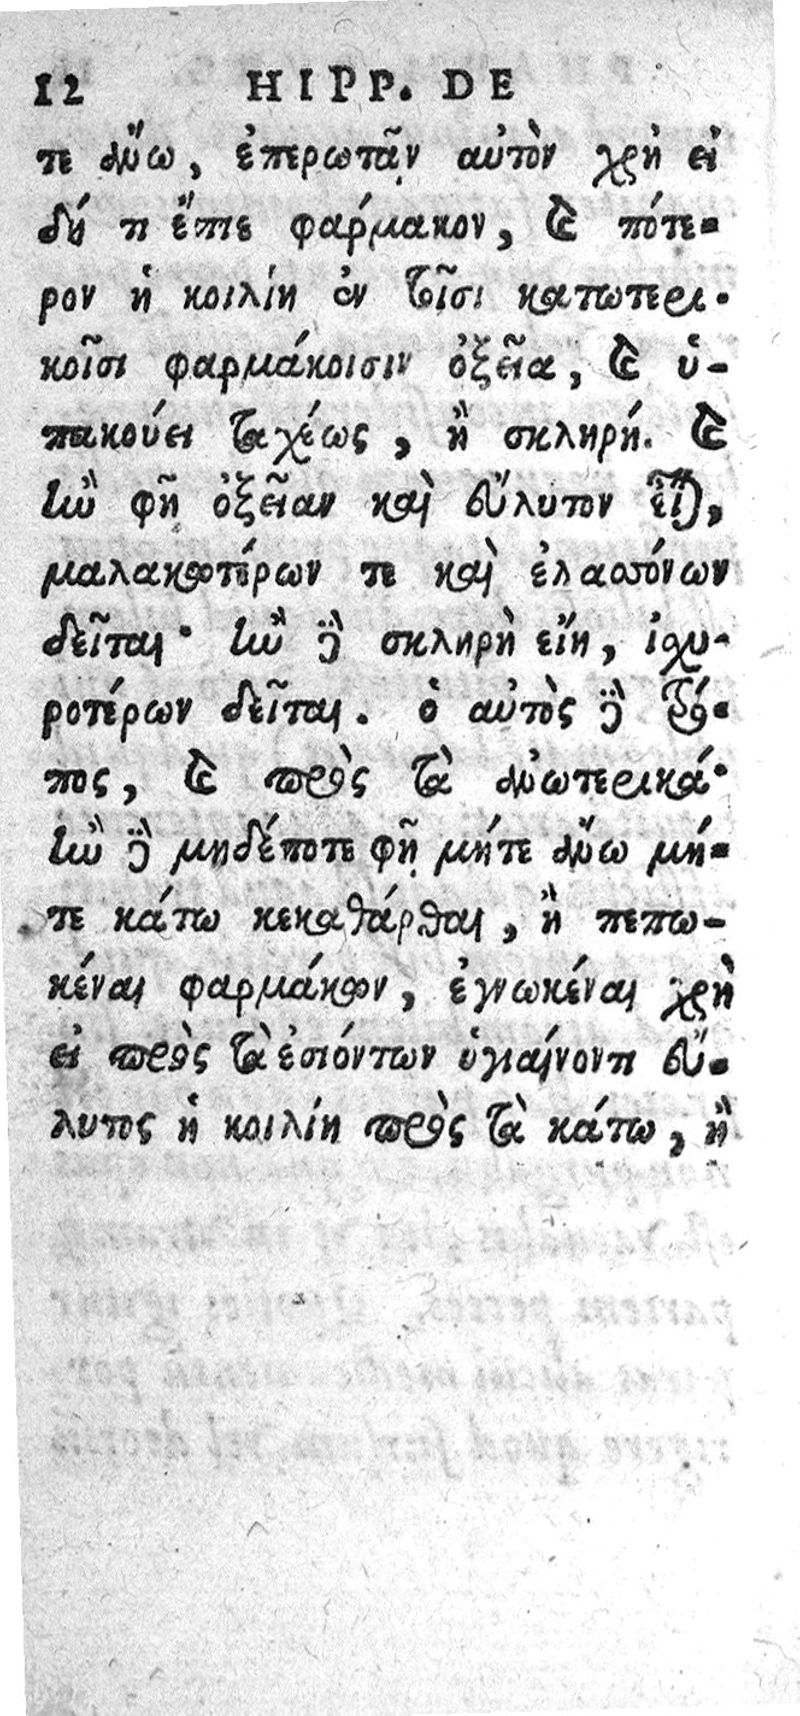 12 HIPP. DE
τε ἄνω, ἐπερωτᾷν αὐτὸν χρὴ εἰ
δή τι ἔπιε φάρμακον, καὶ πότε-
ρον ἡ κοιλίη ἐν τοῖσι κατωτερι-
κοῖσι φαρμάκοισιν ὀξεῖα, καὶ ὑ-
πακούει ταχέως, ἢ σκληρή. καὶ
ἢν φῇ ὀξεῖαν καὶ εὔλυτον εἶναι,
μαλακωτέρων τε καὶ ἐλασσόνων
δεῖται· ἢν δὲ σκληρὴ εἴη, ἰχυ-
ροτέρων δεῖται. ὁ αὐτὸς δὲ τρό-
πος, καὶ πρὸς τὰ ἀνωτερικά·
ἢν δὲ μηδέποτε φῇ μήτε ἄνω μή-
τε κάτω κεκαθάρθαι, ἢ πεπω-
κέναι φαρμάκων, ἐγνωκέναι χρὴ
εἰ πρὸς τὰ ἐσιόντων ὑγιαίνοντι εὔ-
λυτος ἡ κοιλίη πρὸς τὰ κάτω, ἢ